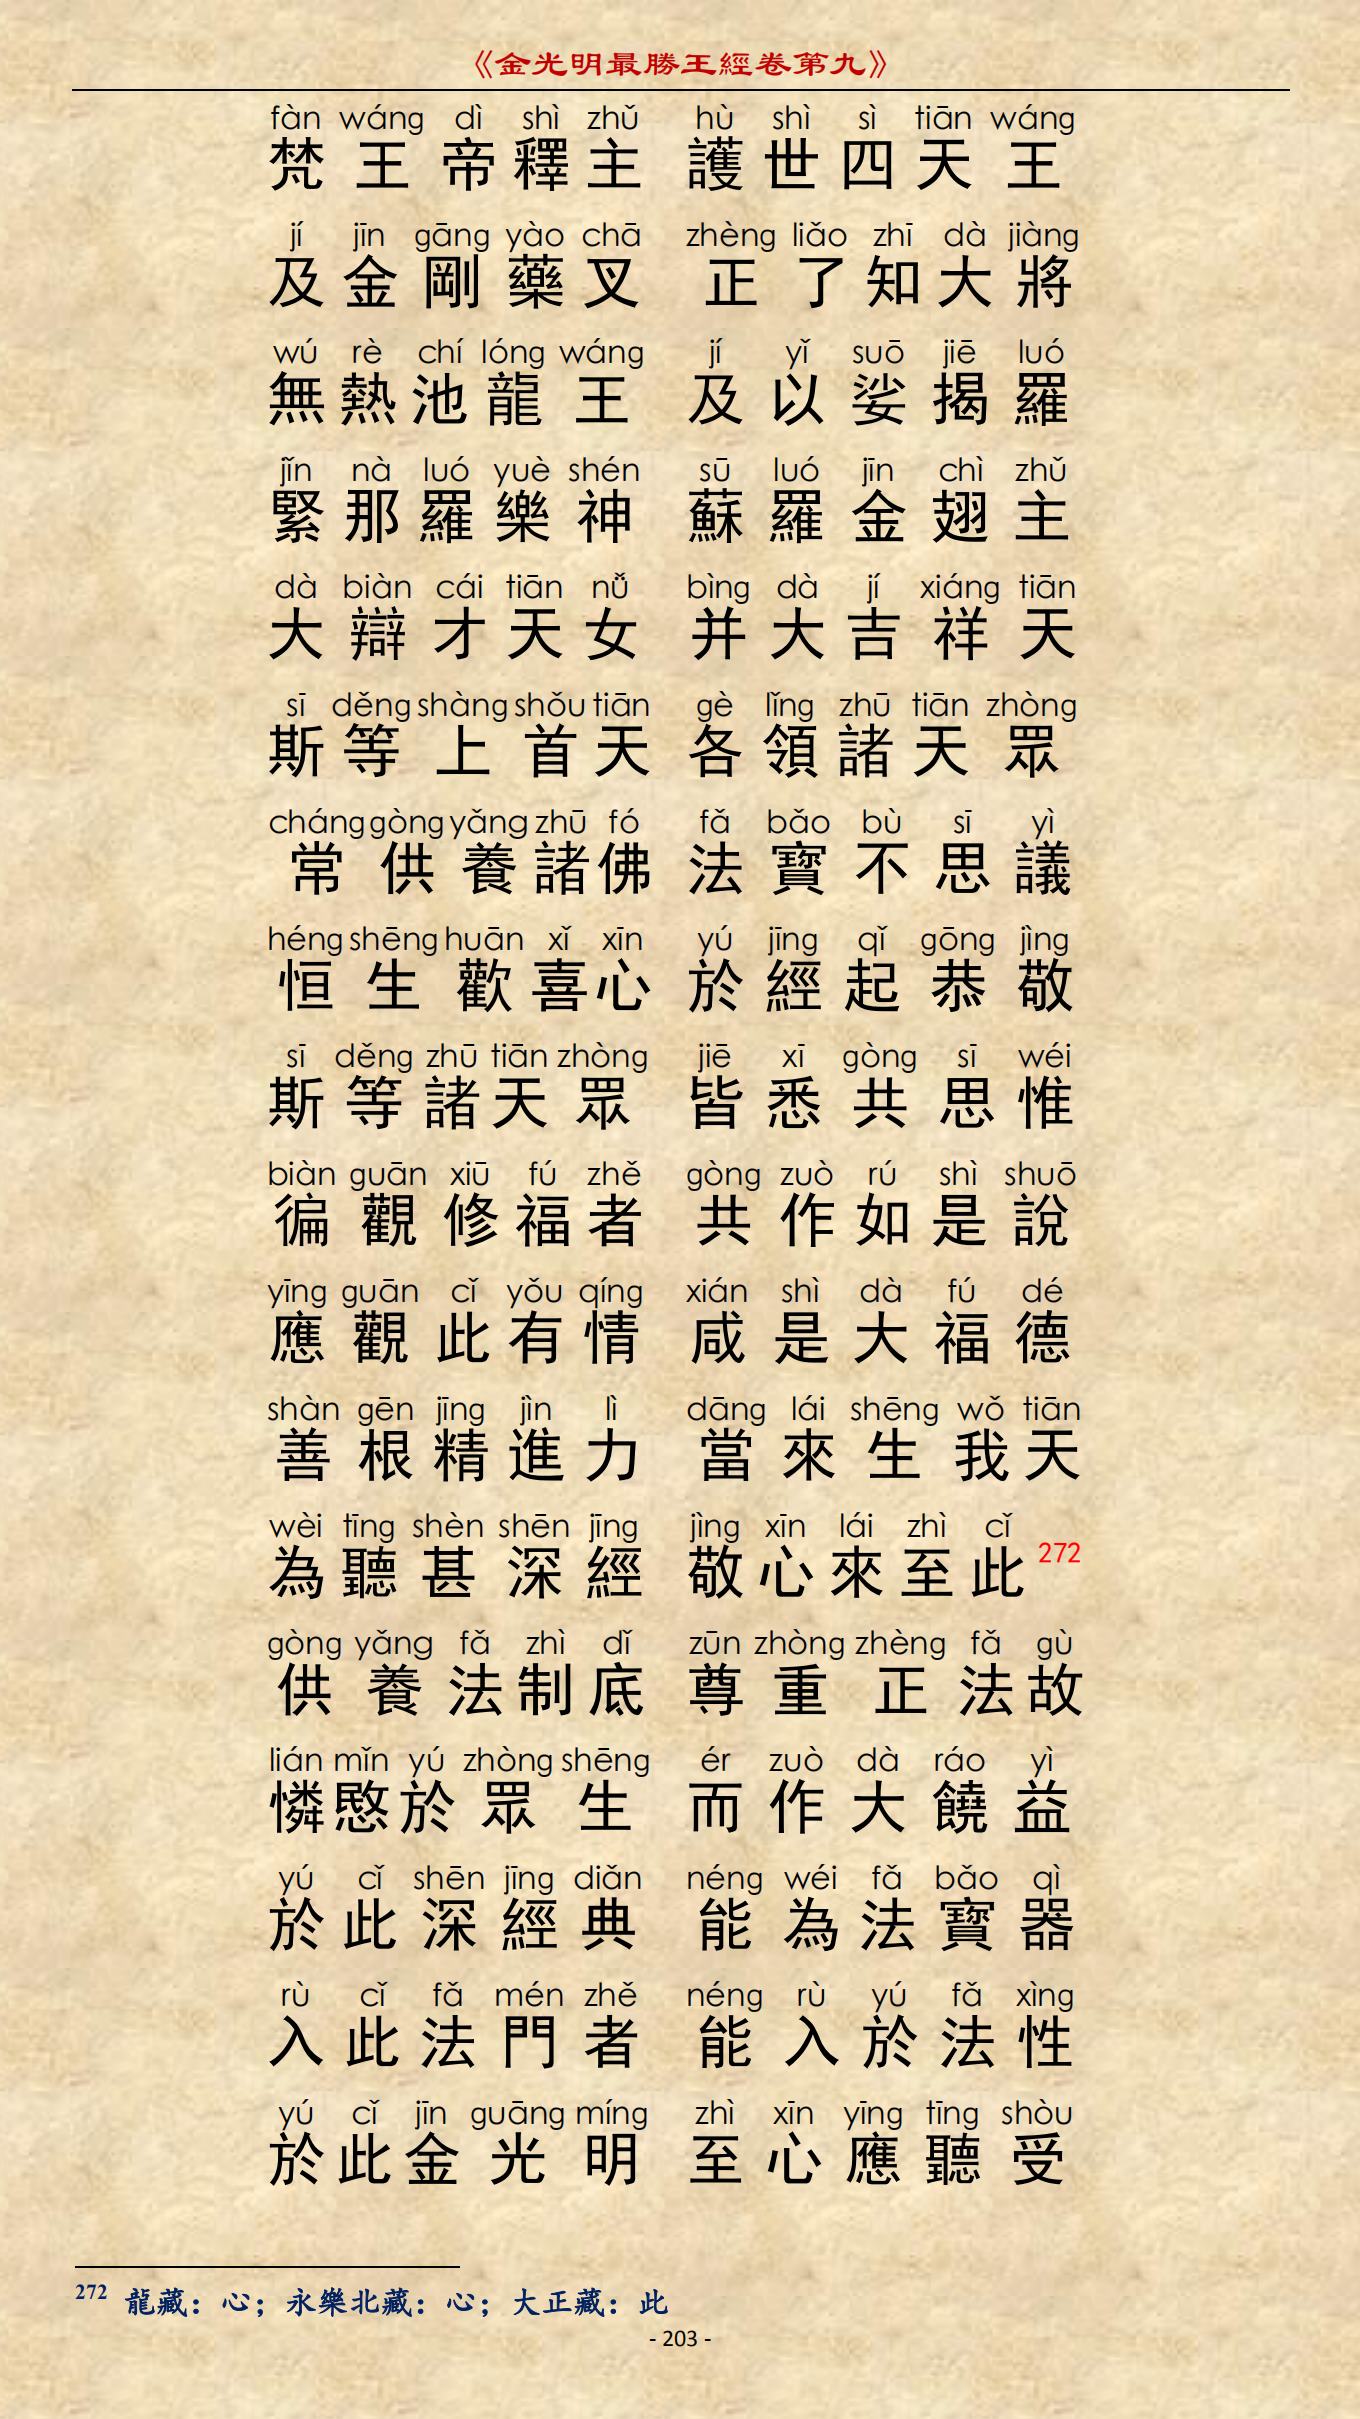 《金光明最勝王經卷第九》
fàn wáng dì shì zhǔ hù shì sì tiān wáng
梵王帝釋主 護世四天王
jí jīn gāng yào chā zhèng liǎo zhī dà jiàng
及金剛藥叉 正了知大將
wú rè chí lóng wáng jí yǐ suō jiē luó
無熱池龍王 及以娑揭羅
jǐn nà luó yuè shén sū luó jīn chì zhǔ
緊那羅樂神 蘇羅金翅主
dà biàn cái tiān nǚ bìng dà jí xiáng tiān
大辯才天女 并大吉祥天
sī děng shàng shǒu tiān gè lǐng zhū tiān zhòng
斯等上首天 各領諸天眾
cháng gòng yǎng zhū fó fǎ bǎo bù sī yì
常供養諸佛 法寶不思議
héng shēng huān xǐ xīn yú jīng qǐ gōng jìng
恒生歡喜心 於經起恭敬
sī děng zhū tiān zhòng jiē xī gòng sī wéi
斯等諸天眾 皆悉共思惟
biàn guān xiū fú zhě gòng zuò rú shì shuō
徧觀修福者 共作如是說
yīng guān cǐ yǒu qíng xián shì dà fú dé
應觀此有情 咸是大福德
shàn gēn jīng jìn lì dāng lái shēng wǒ tiān
善根精進力 當來生我天
wèi tīng shèn shēn jīng jìng xīn lái zhì cǐ
為聽甚深經 敬心來至此272
gòng yǎng fǎ zhì dǐ zūn zhòng zhèng fǎ gù
供養法制底 尊重正法故
lián mǐn yú zhòng shēng ér zuò dà ráo yì
憐愍於眾生 而作大饒益
yú cǐ shēn jīng diǎn néng wéi fǎ bǎo qì
於此深經典 能為法寶器
rù cǐ fǎ mén zhě néng rù yú fǎ xìng
入此法門者 能入於法性
yú cǐ jīn guāng míng zhì xīn yīng tīng shòu
於此金光明 至心應聽受
272 龍藏：心；永樂北藏：心；大正藏：此
- 203 -